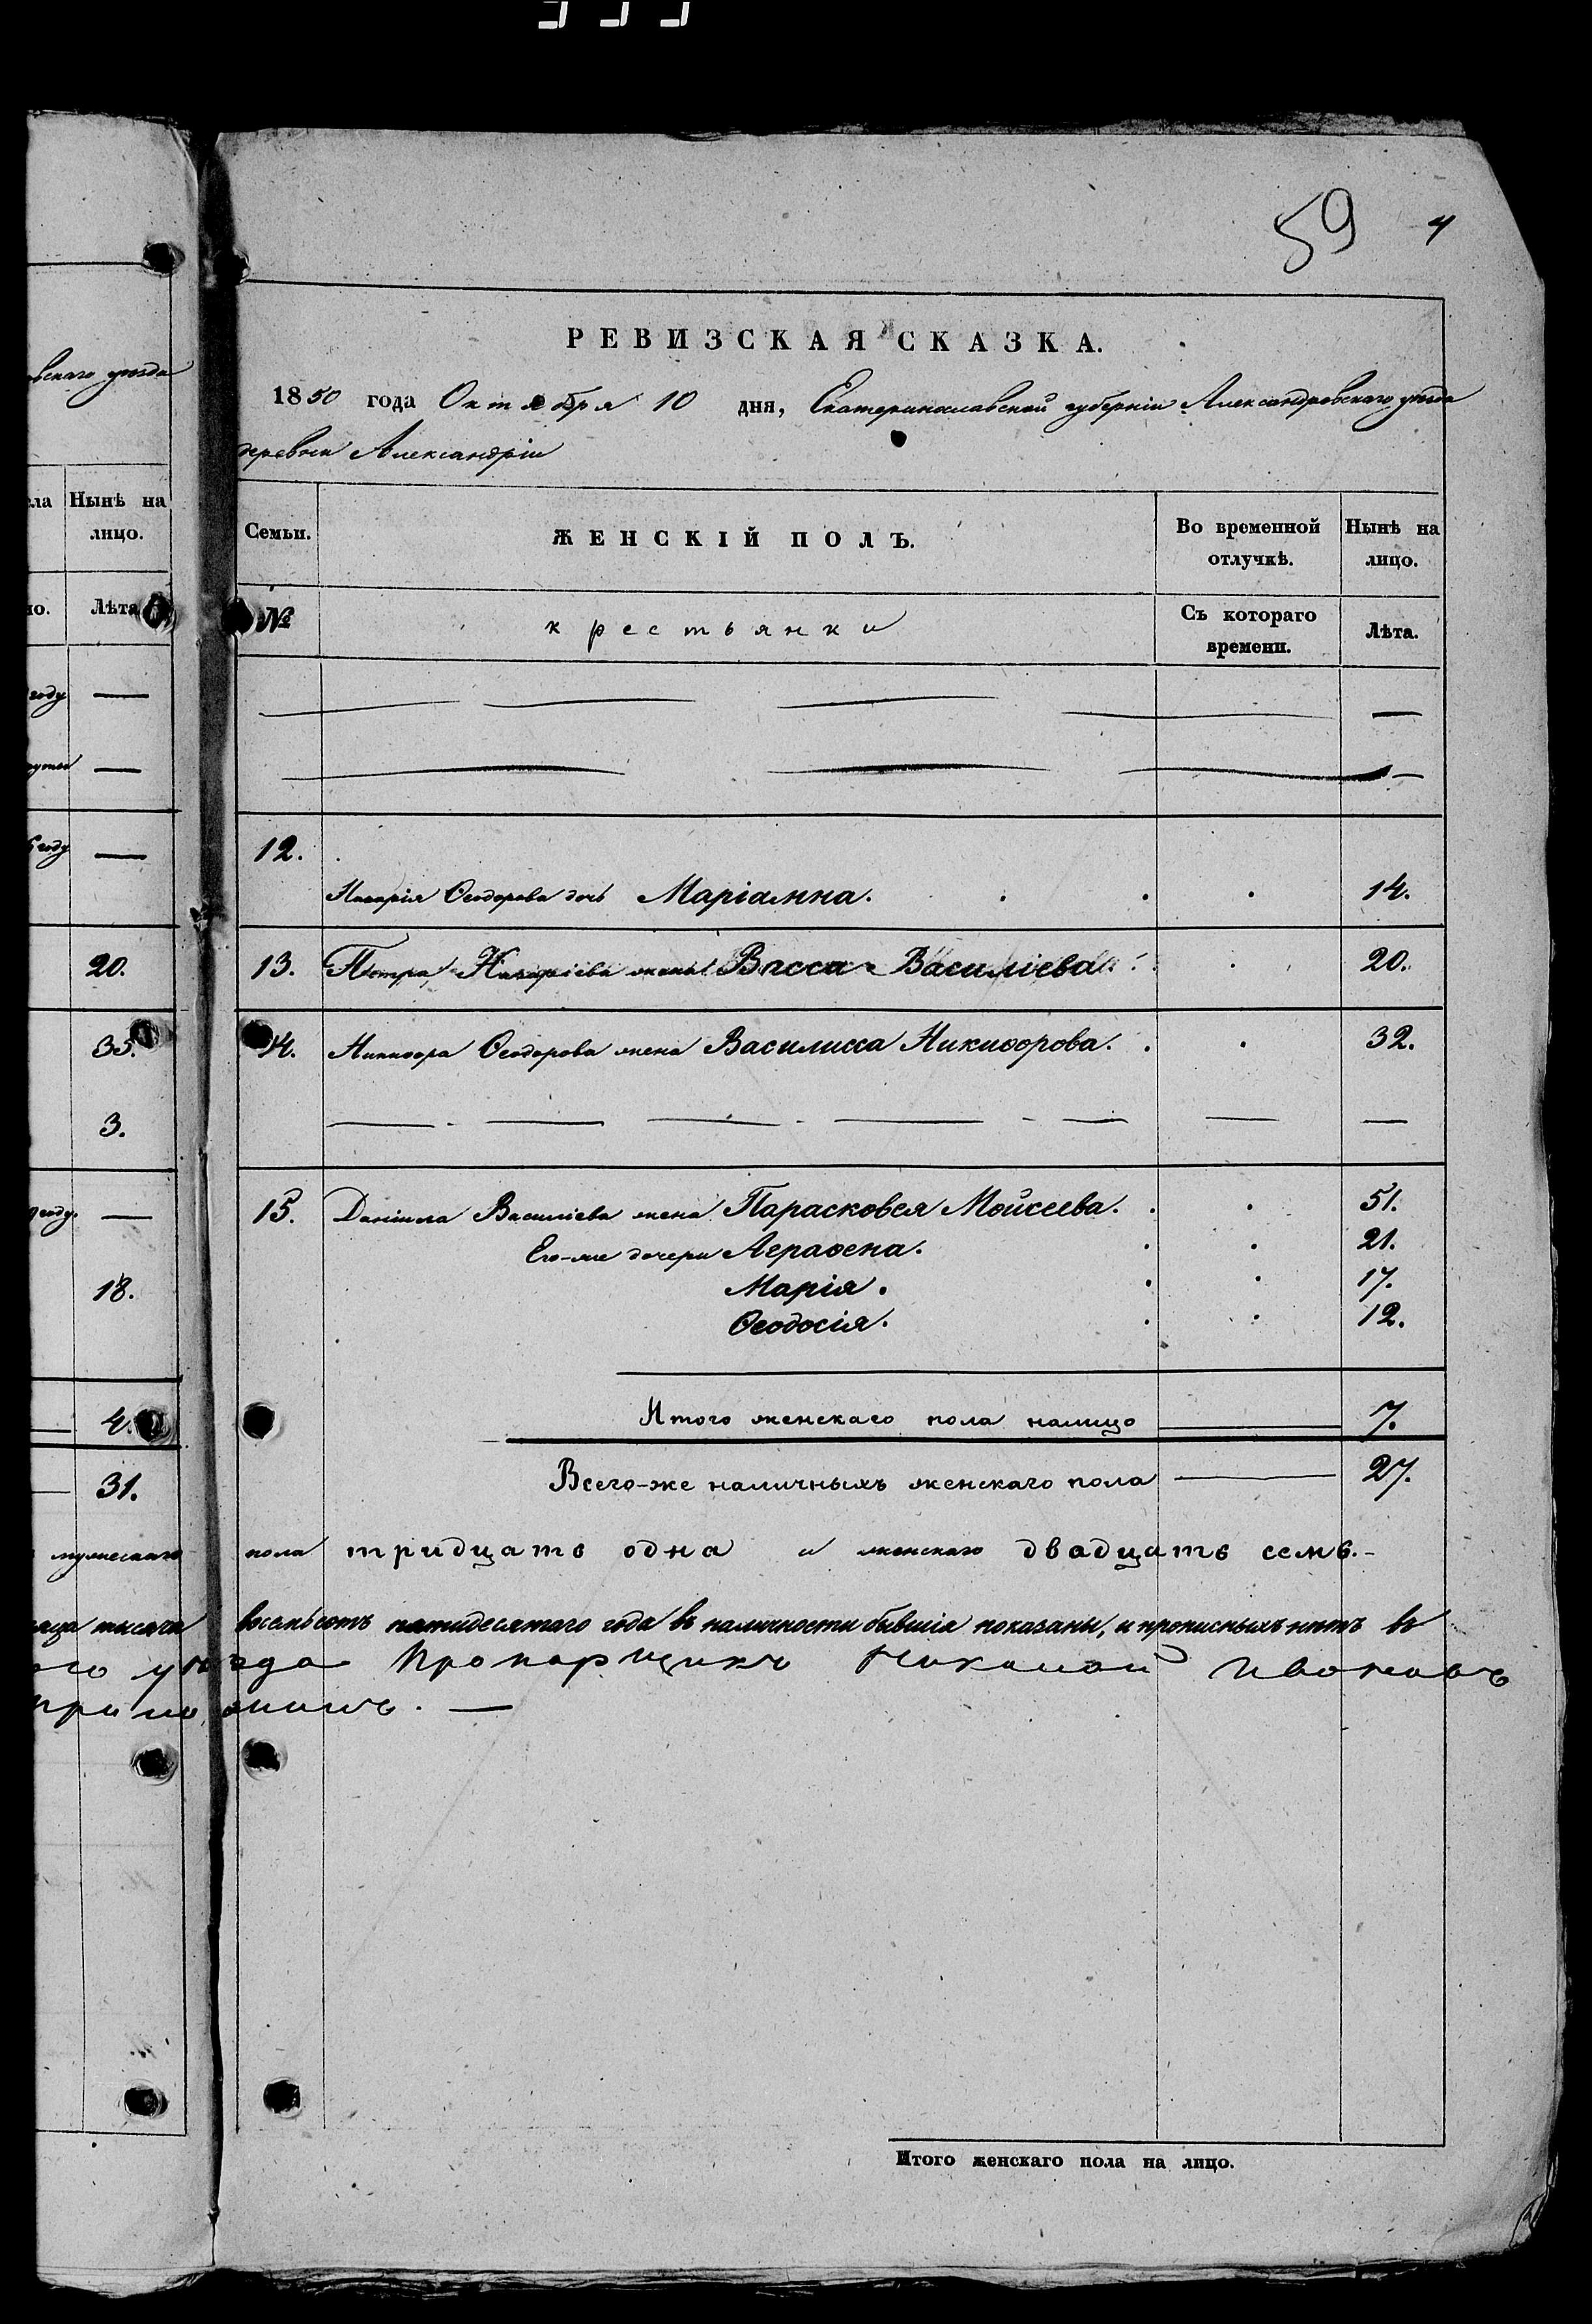 59 4
РЕВИЗСКАЯ СКАЗКА.
1850 года Октября 10 дня, Екатеринославской губерніи Александровскаго уѣзда
деревни Александріи
Семьи. ЖЕНСКІЙ ПОЛЪ. Во временной отлучкѣ. Нынѣ на лицо.
№ крестьянки Съ котораго времени. Лѣта.
12.
Назарія Ѳеодорова дочь Маріамна. 14.
13. Петра Назаріева жена Васса Василіева. 20.
14. Никиѳора Ѳеодорова жена Василисса Никиѳорова. 32.
15. Даніила Василіева жена Парасковея Мойсеева. 51.
Его-же дочери Аграѳена. 21.
Марія. 17.
Ѳеодосія. 12.
Итого женскаго пола налицо 7.
Всего-же наличныхъ женскаго пола 27.
пола тридцать одна и женскаго двадцать семь.-
восемьсотъ пятидесятаго года въ наличности бывшія показаны, и прописныхъ нѣтъ въ
уѣзда Прапорщикъ Николай Ивановъ
приложилъ. —
Итого женскаго пола на лицо.
вскаго уѣзда
Нынѣ на лицо.
Лѣта
году
году
20.
35.
3.
году.
18.
4.
31.
мужескаго
тысяча